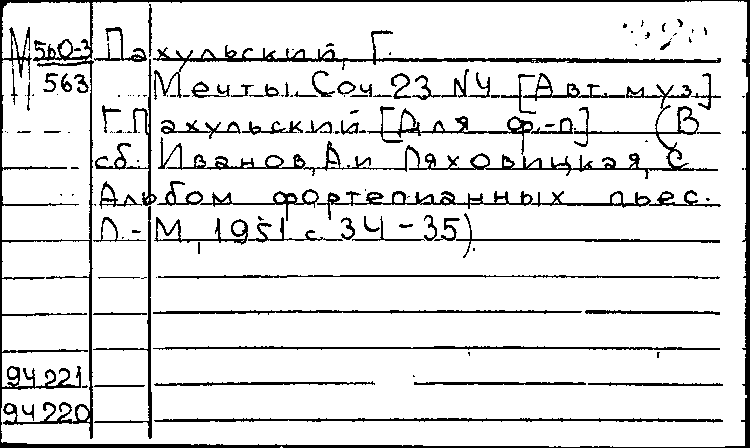 М 560-3 Пахульский, Г.
563 Мечты. Соч 23 №4 [Авт. муз.]
Г. Пахульский [Для ф.-п.] (В
сб. Иванов, А. и Ляховицкая, С
Альбом фортепианных пьес.
Л.-М., 1951 с. 34-35)
94221
94220